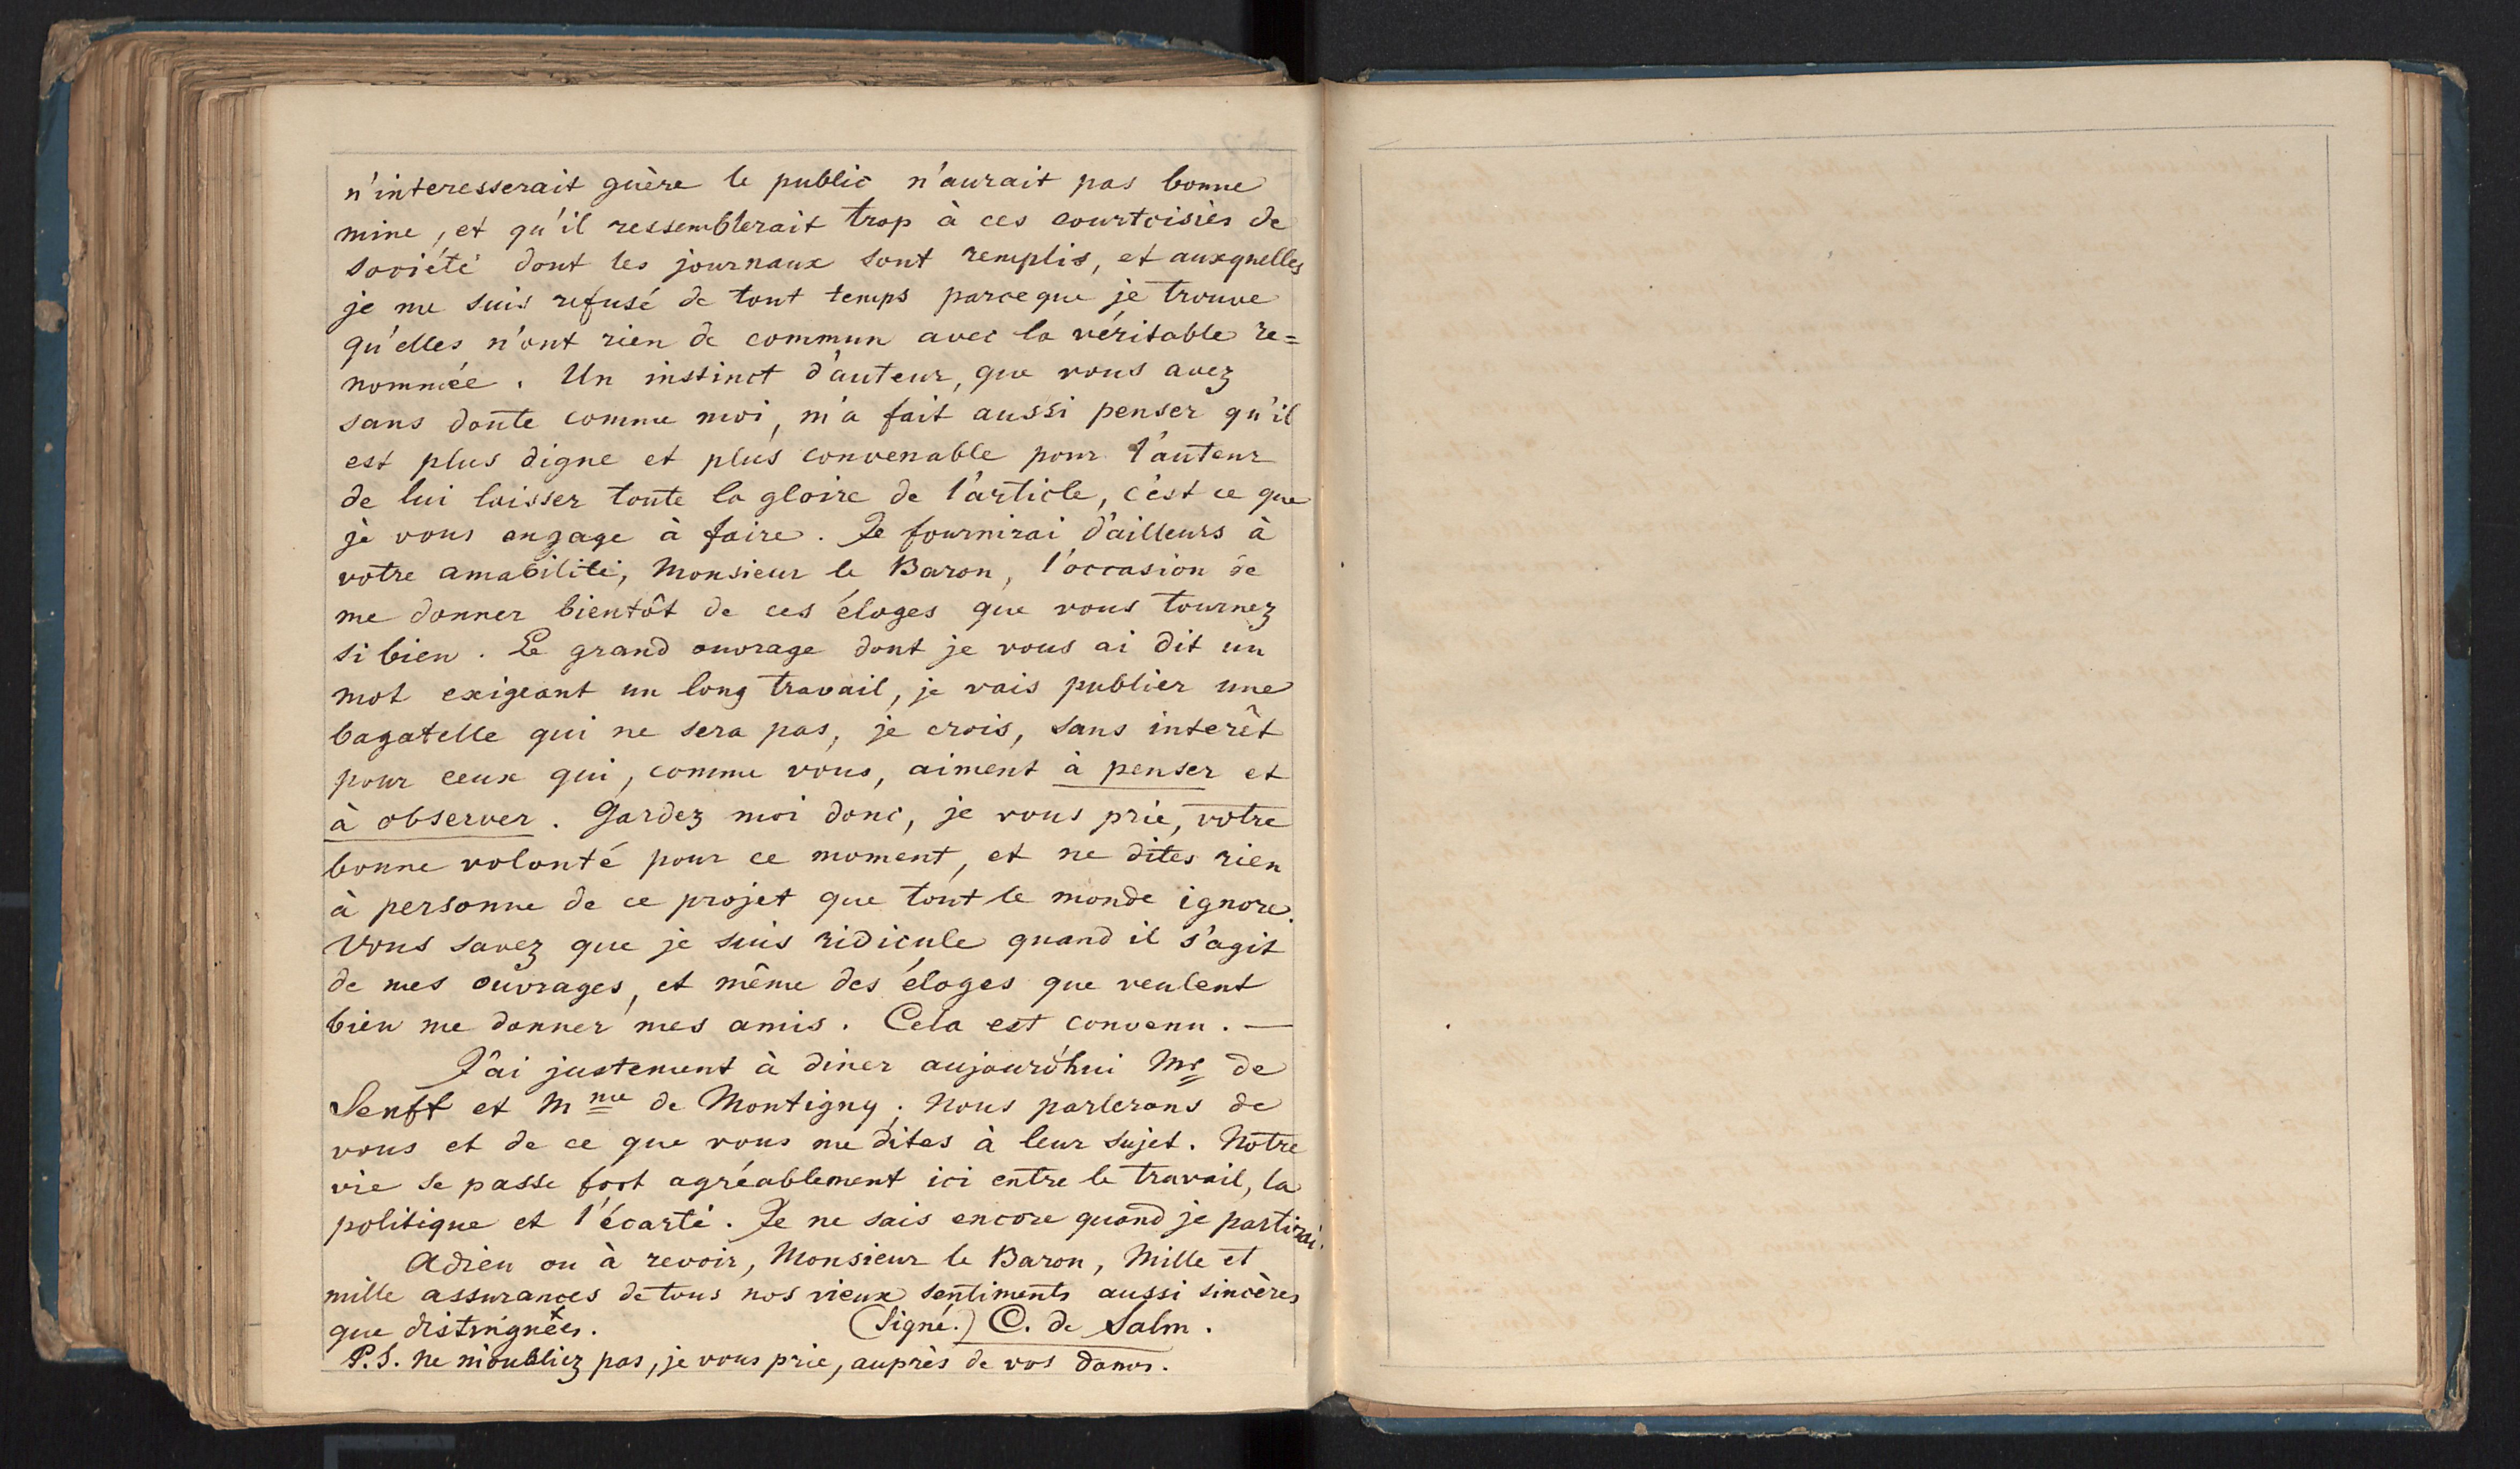 n'interesserait guère le public n'aurait pas bonne
mine, et qu'il ressemblerait trop à ces courtoisies de
société dont les journaux sont remplis, et auxquelles
je me suis refusé de tout temps parceque je trouve
qu'elles n'ont rien de commun avec la véritable re=
nommée. Un instinct d'auteur, que vous avez
sans doute comme moi, m'a fait aussi penser qu'il
est plus digne et plus convenable pour l'auteur
de lui laisser toute la gloire de l'article, c'est ce que
je vous engage à faire. Je fournirai d'ailleurs à
votre amabilité, Monsieur le Baron, l'occasion de
me donner bientôt de ces éloges que vous tournez
si bien. Le grand ouvrage dont je vous ai dit un
mot exigeant un long travail, je vais publier une
bagatelle qui ne sera pas, je crois, sans interêt
pour ceux qui, comme vous, aiment à penser et
à observer. Gardez moi donc, je vous prie, votre
bonne volonté pour ce moment, et ne dites rien
à personne de ce projet que tout le monde ignore.
Vous savez que je suis ridicule quand il s'agit
de mes ouvrages, et même des éloges que veulent
bien me donner mes amis. Cela est convenu. —
J'ai justement à diner aujourd'hui Mr de
Senft et Mme de Montigny; nous parlerons de
vous et de ce que vous me dites à leur sujet. Notre
vie se passe fort agréablement ici entre le travail, la
politique et l'écarté. Je ne sais encore quand je partirai.
Adieu ou à revoir, Monsieur le Baron, Mille et
mille assurances de tous nos vieux sentiments aussi sincères
que distingués. (Signé.) C. de Salm.
P.S. Ne m'oubliez pas, je vous prie, auprès de vos dames.